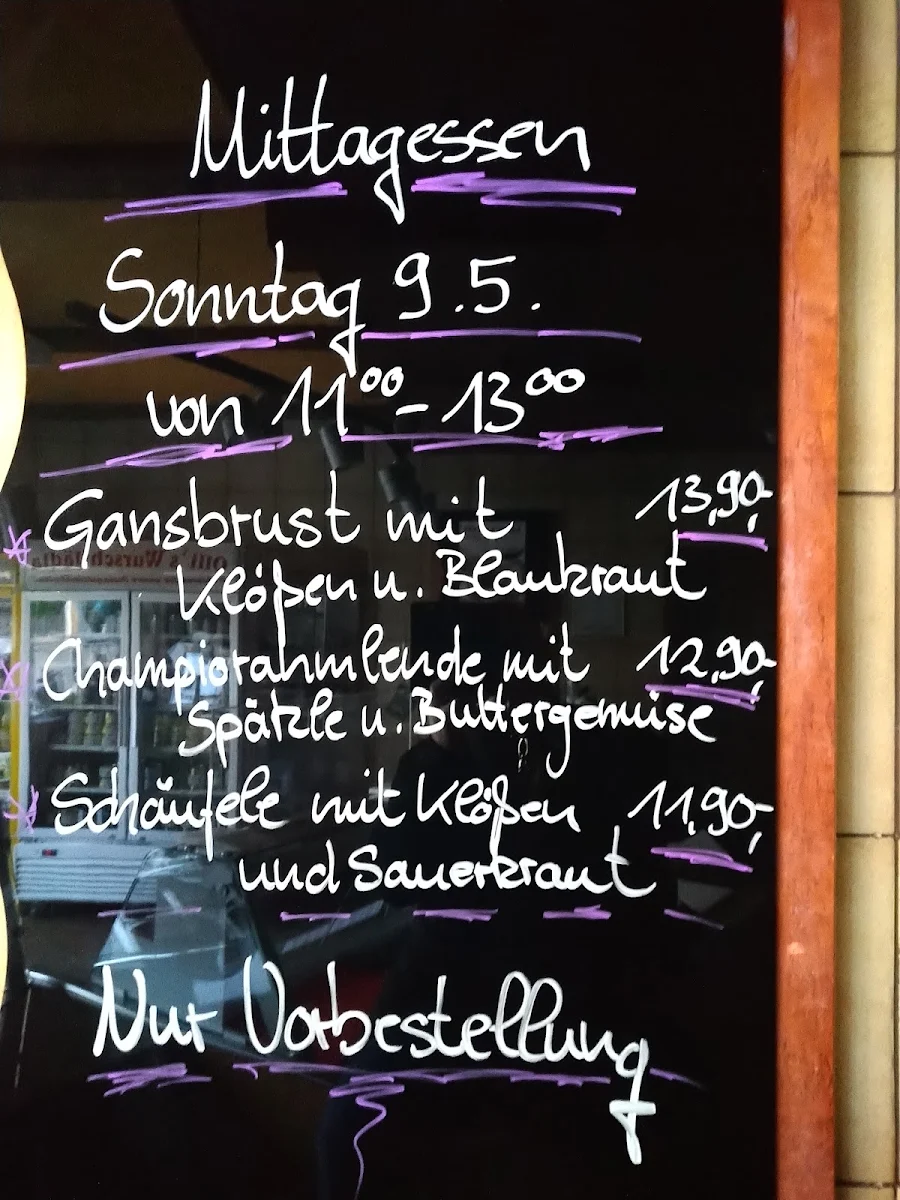 Mittagessen
Sonntag 9.5.
von 11⁰⁰ - 13⁰⁰
* Gansbrust mit 13,90,-
Klößen u. Blaukraut
* Champiorahmlende mit 12,90,-
Spätzle u. Buttergemüse
* Schäufele mit Klößen 11,90,-
und Sauerkraut
Nur Vorbestellung
Olli's Wurschtlädla